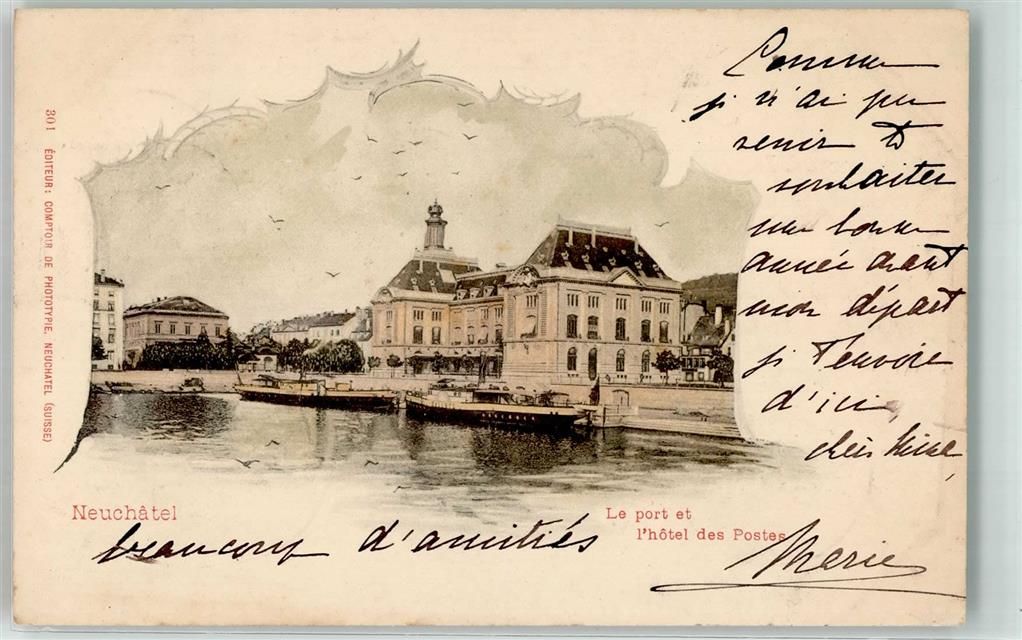 Comme
je n'ai pu
venir te
souhaiter
une bonne
année avant
mon départ
je t'envoie
d'ici,
chère
beaucoup d'amitiés
Marie
Neuchâtel
Le port et
l'hôtel des Postes
301 ÉDITEUR: COMPTOIR DE PHOTOTYPIE, NEUCHATEL (SUISSE)